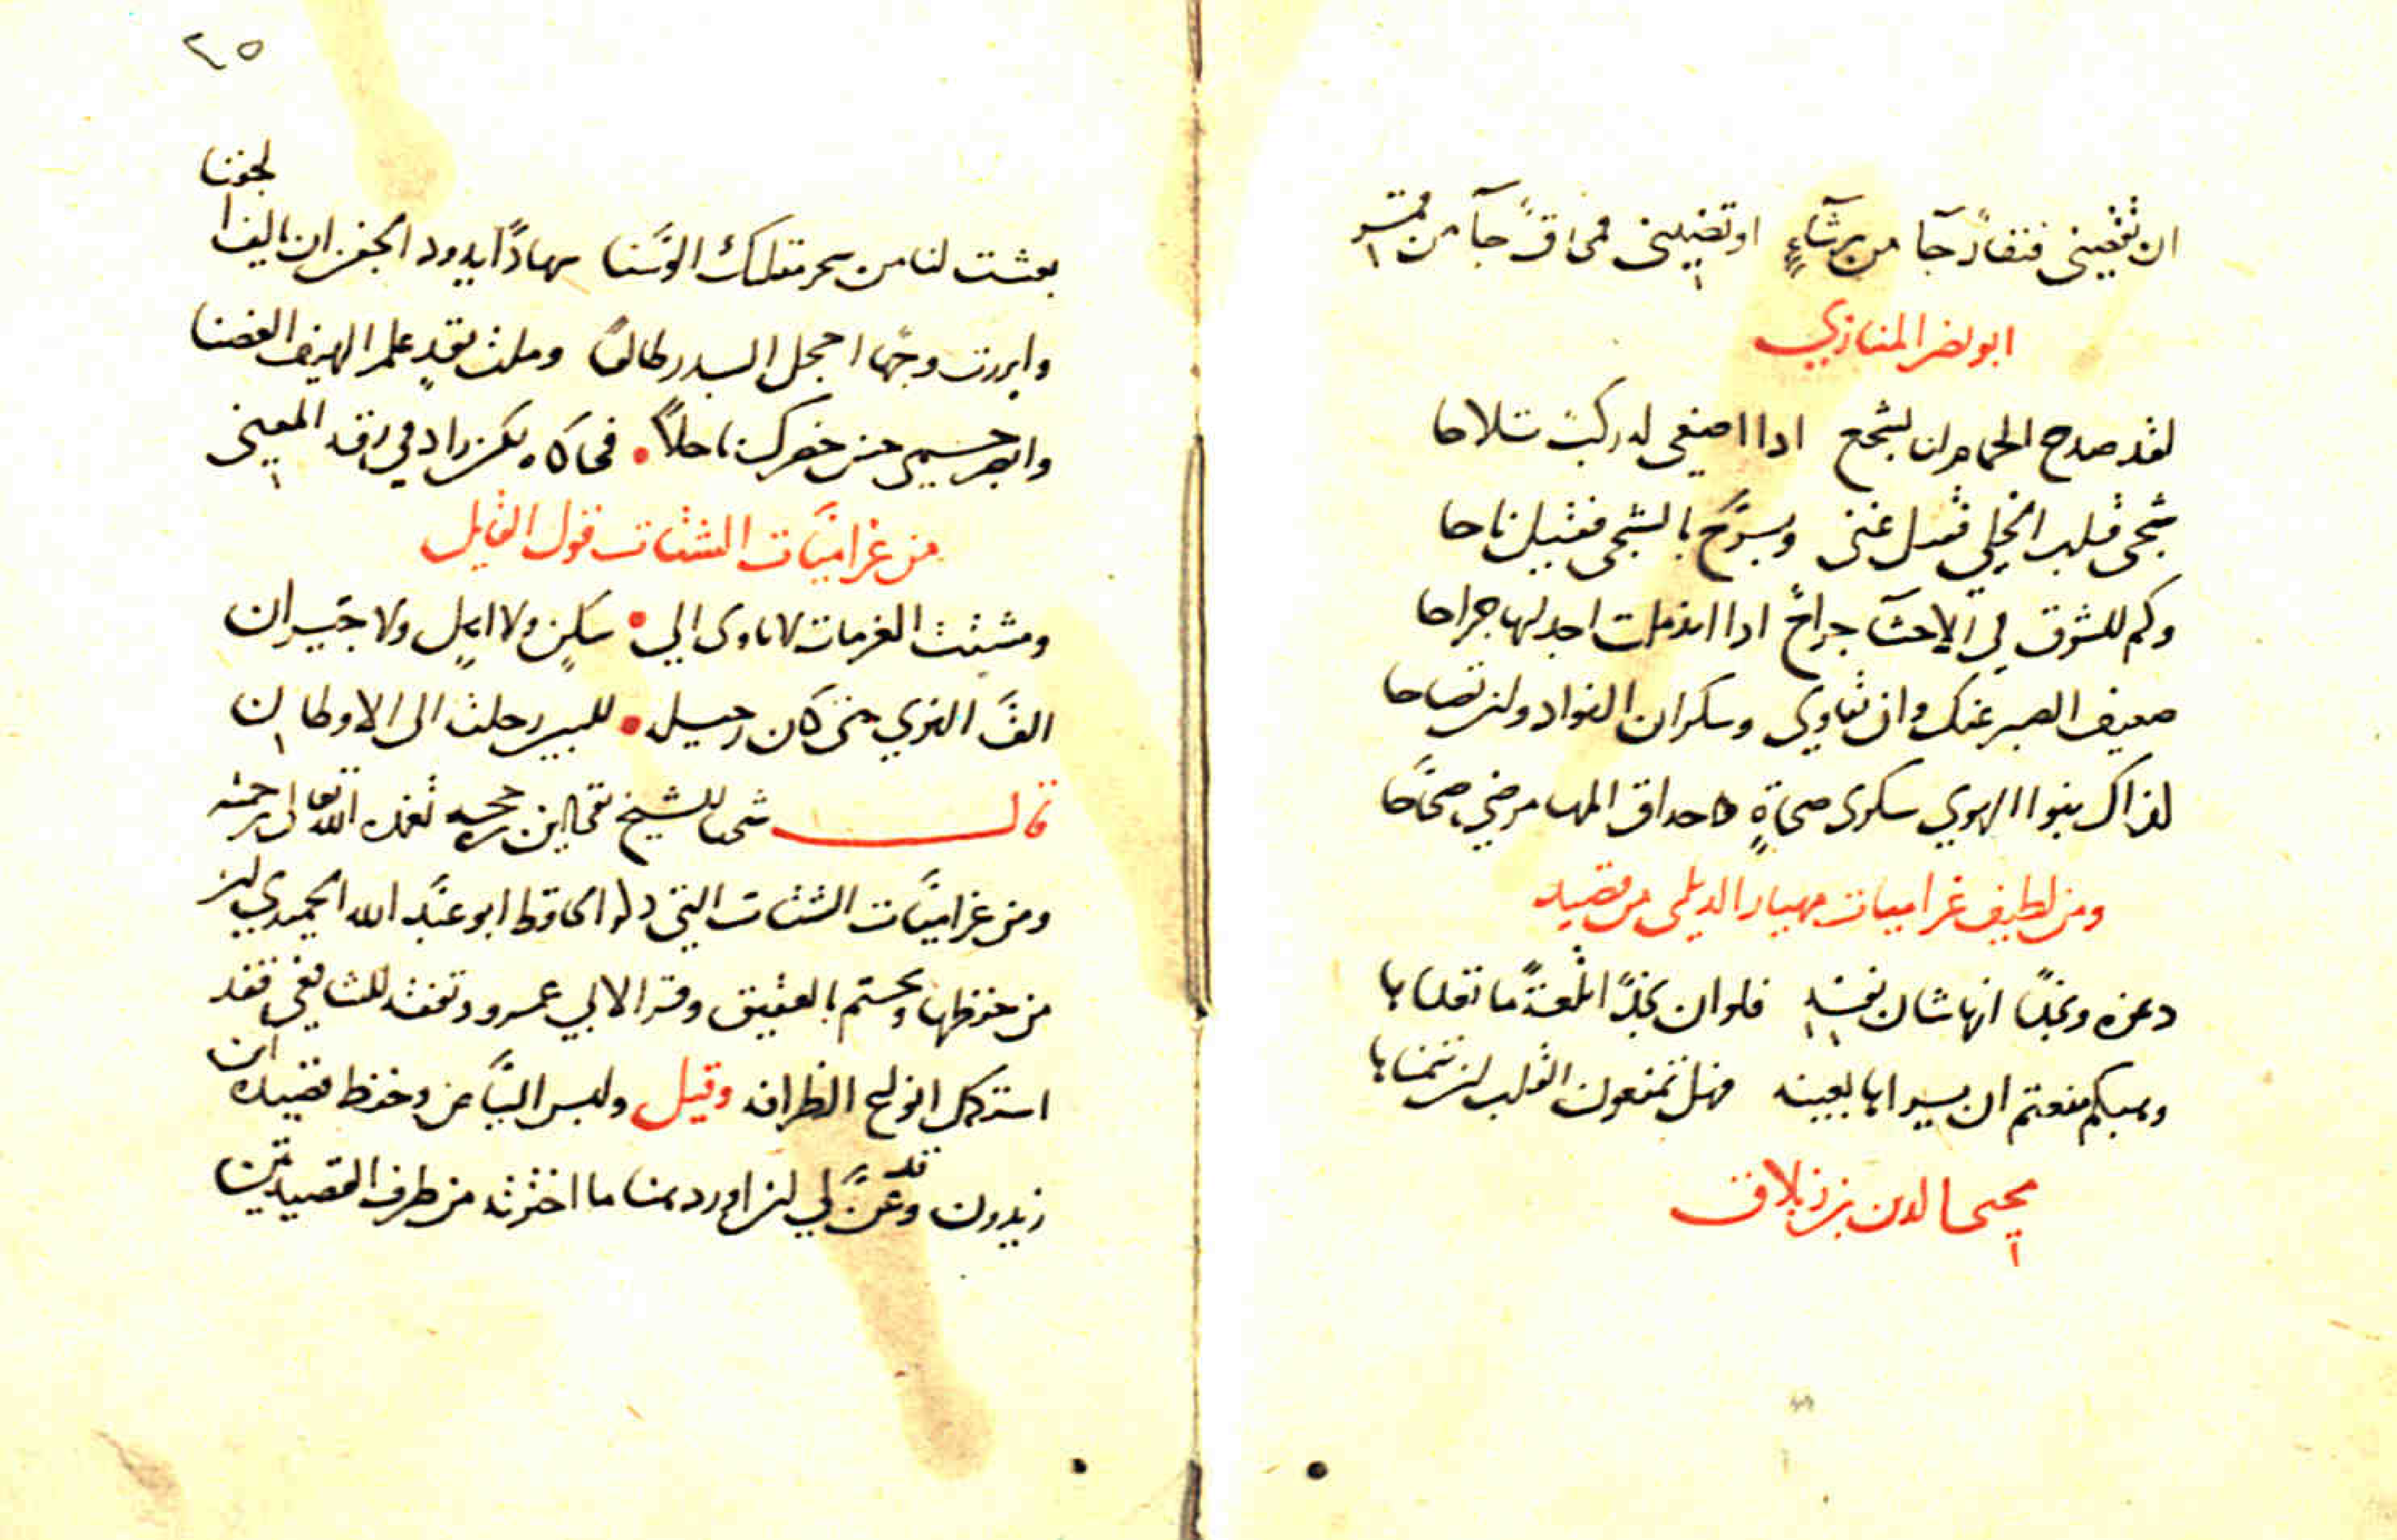 ابو نصر المنازي
لقد صدح الحمام لنا بسجع اذا اصغى له ركب تلاحا
شجى قلب الخلي فقيل غنى وبرّح بالشجي فقيل ناحا
وكم للشوق في الاحشا جراح اذا اندملت اجد لها جراحا
ضعيف الصبر عنك وان تقاوى وسكران الفواد وان تصاحا
لذاك بنوا الهوي سكرى صحاةٍ كاحداق المها مرضي صحاحا
ومن لطيف غراميات مهيار الديلمي من قصيده
دعوه ونجدًا انها شان نفسه فلوان نجدًا تلعةً ما تعداها
وهبكم منعتم ان يراها بعينه فهل تمنعون القلب ان يتمناها
محيى الدين بن زيلاق
٢٥
بعثت لنا من سحر مقلتك الوسنا سهادًا يذود الجفن ان يالف الجفنا
وابرزت وجهًا اخجل البدر طالعًا وملت بقدٍ علم الهيف الغصنا
وابصر جسمي حسن خصرك ناحلًا فحاكاه لكن زاد في رقه المعنى
من غراميّات الشتات قول القايل
ومشتت العزمات لا ياوى الي سكنٍ ولا اهلٍ ولا جيران
الفَ النوي حتى كان رحيله للبين رحلته الى الاوطان
قال الشيخ تقي الدين بن حجه تغمده الله تعالى برحمته
ومن غراميّات الشتات التي الحافظ ابو عبد الله الحميدي ان
من حفظها وتختم بالعقيق وقرا لابي عمرو وتفقه للشافعي فقد
استكمل انواع الظرافه وقيل ولبس البياض وحفظ قصيدة ابن
زيدون وقد عنّ لي ان اورد هنا ما اخترته من طرف القصيدتين